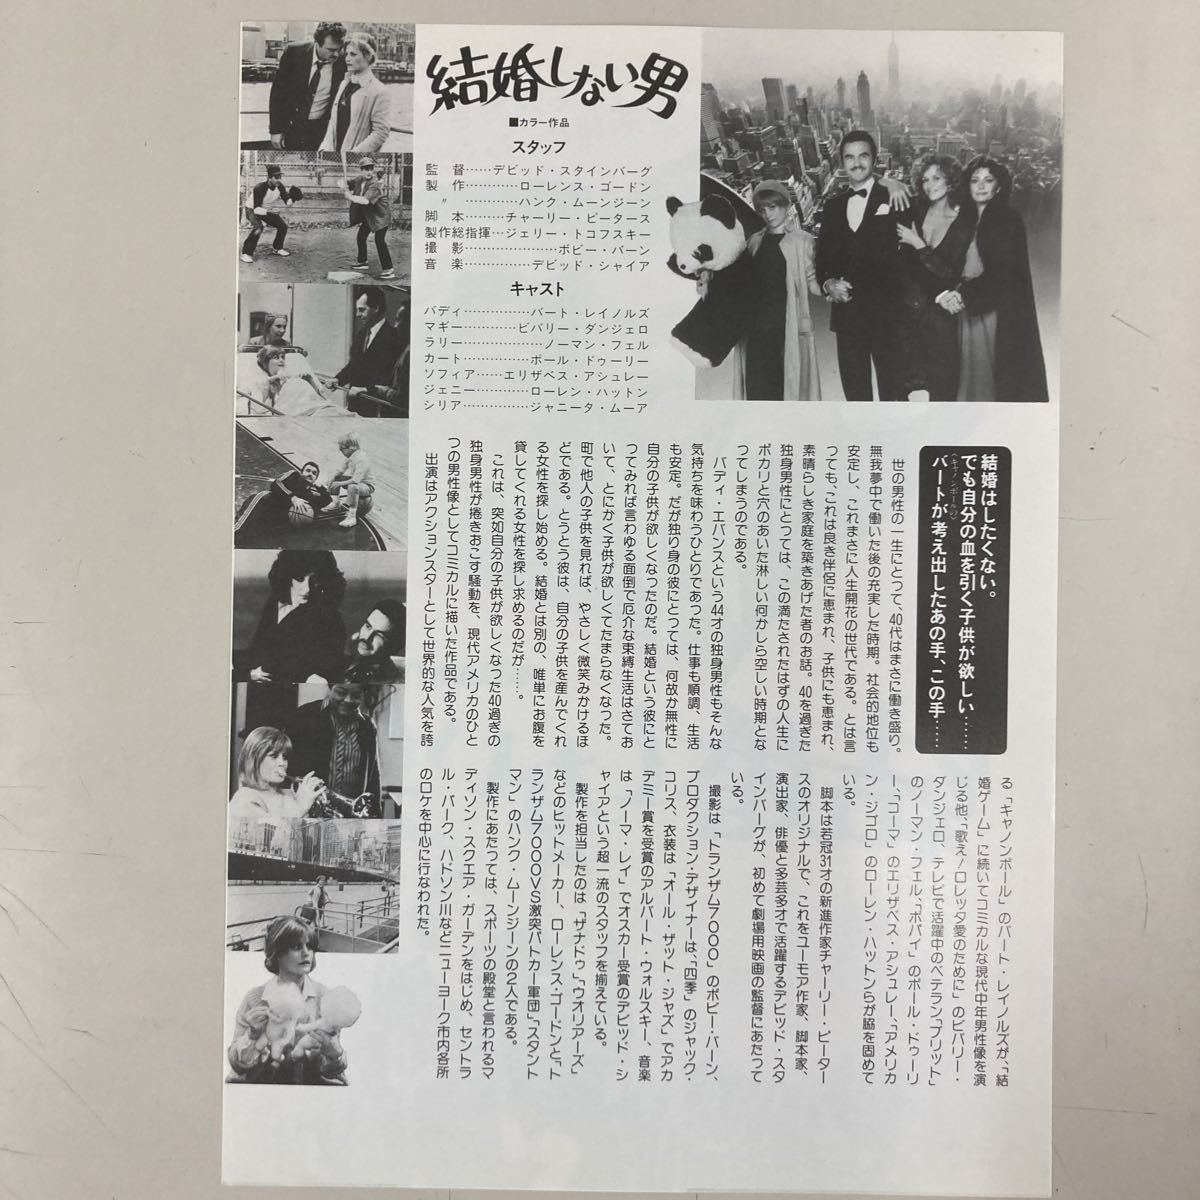 結婚しない男
■カラー作品
スタッフ
監督……デビッド・スタインバーグ
製作…………ローレンス・ゴードン
〃 …………ハンク・ムーンジーン
脚本………チャーリー・ピータース
製作総指揮…ジェリー・トコフスキー
撮影…………………ボビー・バーン
音楽……………デビッド・シャイア
キャスト
バディ……………バート・レイノルズ
マギー…………ビバリー・ダンジェロ
ラリー……………………ノーマン・フェル
カート……………ポール・ドゥーリー
ソフィア……エリザベス・アシュレー
ジェニー…………ローレン・ハットン
シリア……………ジャニータ・ムーア
結婚はしたくない。
でも自分の血を引く子供が欲しい……
〈キャノンボールの〉
バートが考え出したあの手、この手……
世の男性の一生にとって、40代はまさに働き盛り。
無我夢中で働いた後の充実した時期。社会的地位も
安定し、これまさに人生開花の世代である。とは言
つても、これは良き伴侶に恵まれ、子供にも恵まれ、
素晴らしき家庭を築きあげた者のお話。40を過ぎた
独身男性にとっては、この満たされたはずの人生に
ポカリと穴のあいた淋しい何かしら空しい時期とな
つてしまうのである。
バディ・エバンスという44才の独身男性もそんな
気持ちを味わうひとりであった。仕事も順調、生活
も安定。だが独り身の彼にとっては、何故か無性に
自分の子供が欲しくなったのだ。結婚という彼にと
つてみれば言わゆる面倒で厄介な束縛生活はさてお
いて、とにかく子供が欲しくてたまらなくなった。
町で他人の子供を見れば、やさしく微笑みかけるほ
どである。とうとう彼は、自分の子供を産んでくれ
る女性を探し始める。結婚とは別の、唯単にお腹を
貸してくれる女性を探し求めるのだが……。
これは、突如自分の子供が欲しくなった40過ぎの
独身男性が捲きおこす騒動を、現代アメリカのひと
つの男性像としてコミカルに描いた作品である。
出演はアクションスターとして世界的な人気を誇
る「キャノンボール」のバート・レイノルズが、「結
婚ゲーム」に続いてコミカルな現代中年男性像を演
じる他、「歌え!ロレッタ愛のために」のビバリー・
ダンジェロ、テレビで活躍中のベテラン、「ブリット」
のノーマン・フェル、「ポパイ」のポール・ドゥーリ
ー、「コーマ」のエリザベス・アシュレー、「アメリカ
ン・ジゴロ」のローレン・ハットンらが脇を固めて
いる。
脚本は若冠31才の新進作家チャーリー・ピーター
スのオリジナルで、これをユーモア作家、脚本家、
演出家、俳優と多芸多才で活躍するデビッド・スタ
インバーグが、初めて劇場用映画の監督にあたって
いる。
撮影は「トランザム7000」のボビー・バーン、
プロダクション・デザイナーは、「四季」のジャック・
コリス、衣装は「オール・ザット・ジャズ」でアカ
デミー賞を受賞のアルバート・ウォルスキー、音楽
は「ノーマ・レイ」でオスカー受賞のデビッド・シ
ャイアという超一流のスタッフを揃えている。
製作を担当したのは「ザナドゥ」「ウオリアーズ」
などのヒットメーカー、ローレンス・ゴードンと、「ト
ランザム7000VS激突パトカー軍団」「スタント
マン」のハンク・ムーンジーンの2人である。
製作にあたっては、スポーツの殿堂と言われるマ
ディソン・スクエア・ガーデンをはじめ、セントラ
ル・パーク、ハドソン川などニューヨーク市内各所
のロケを中心に行なわれた。